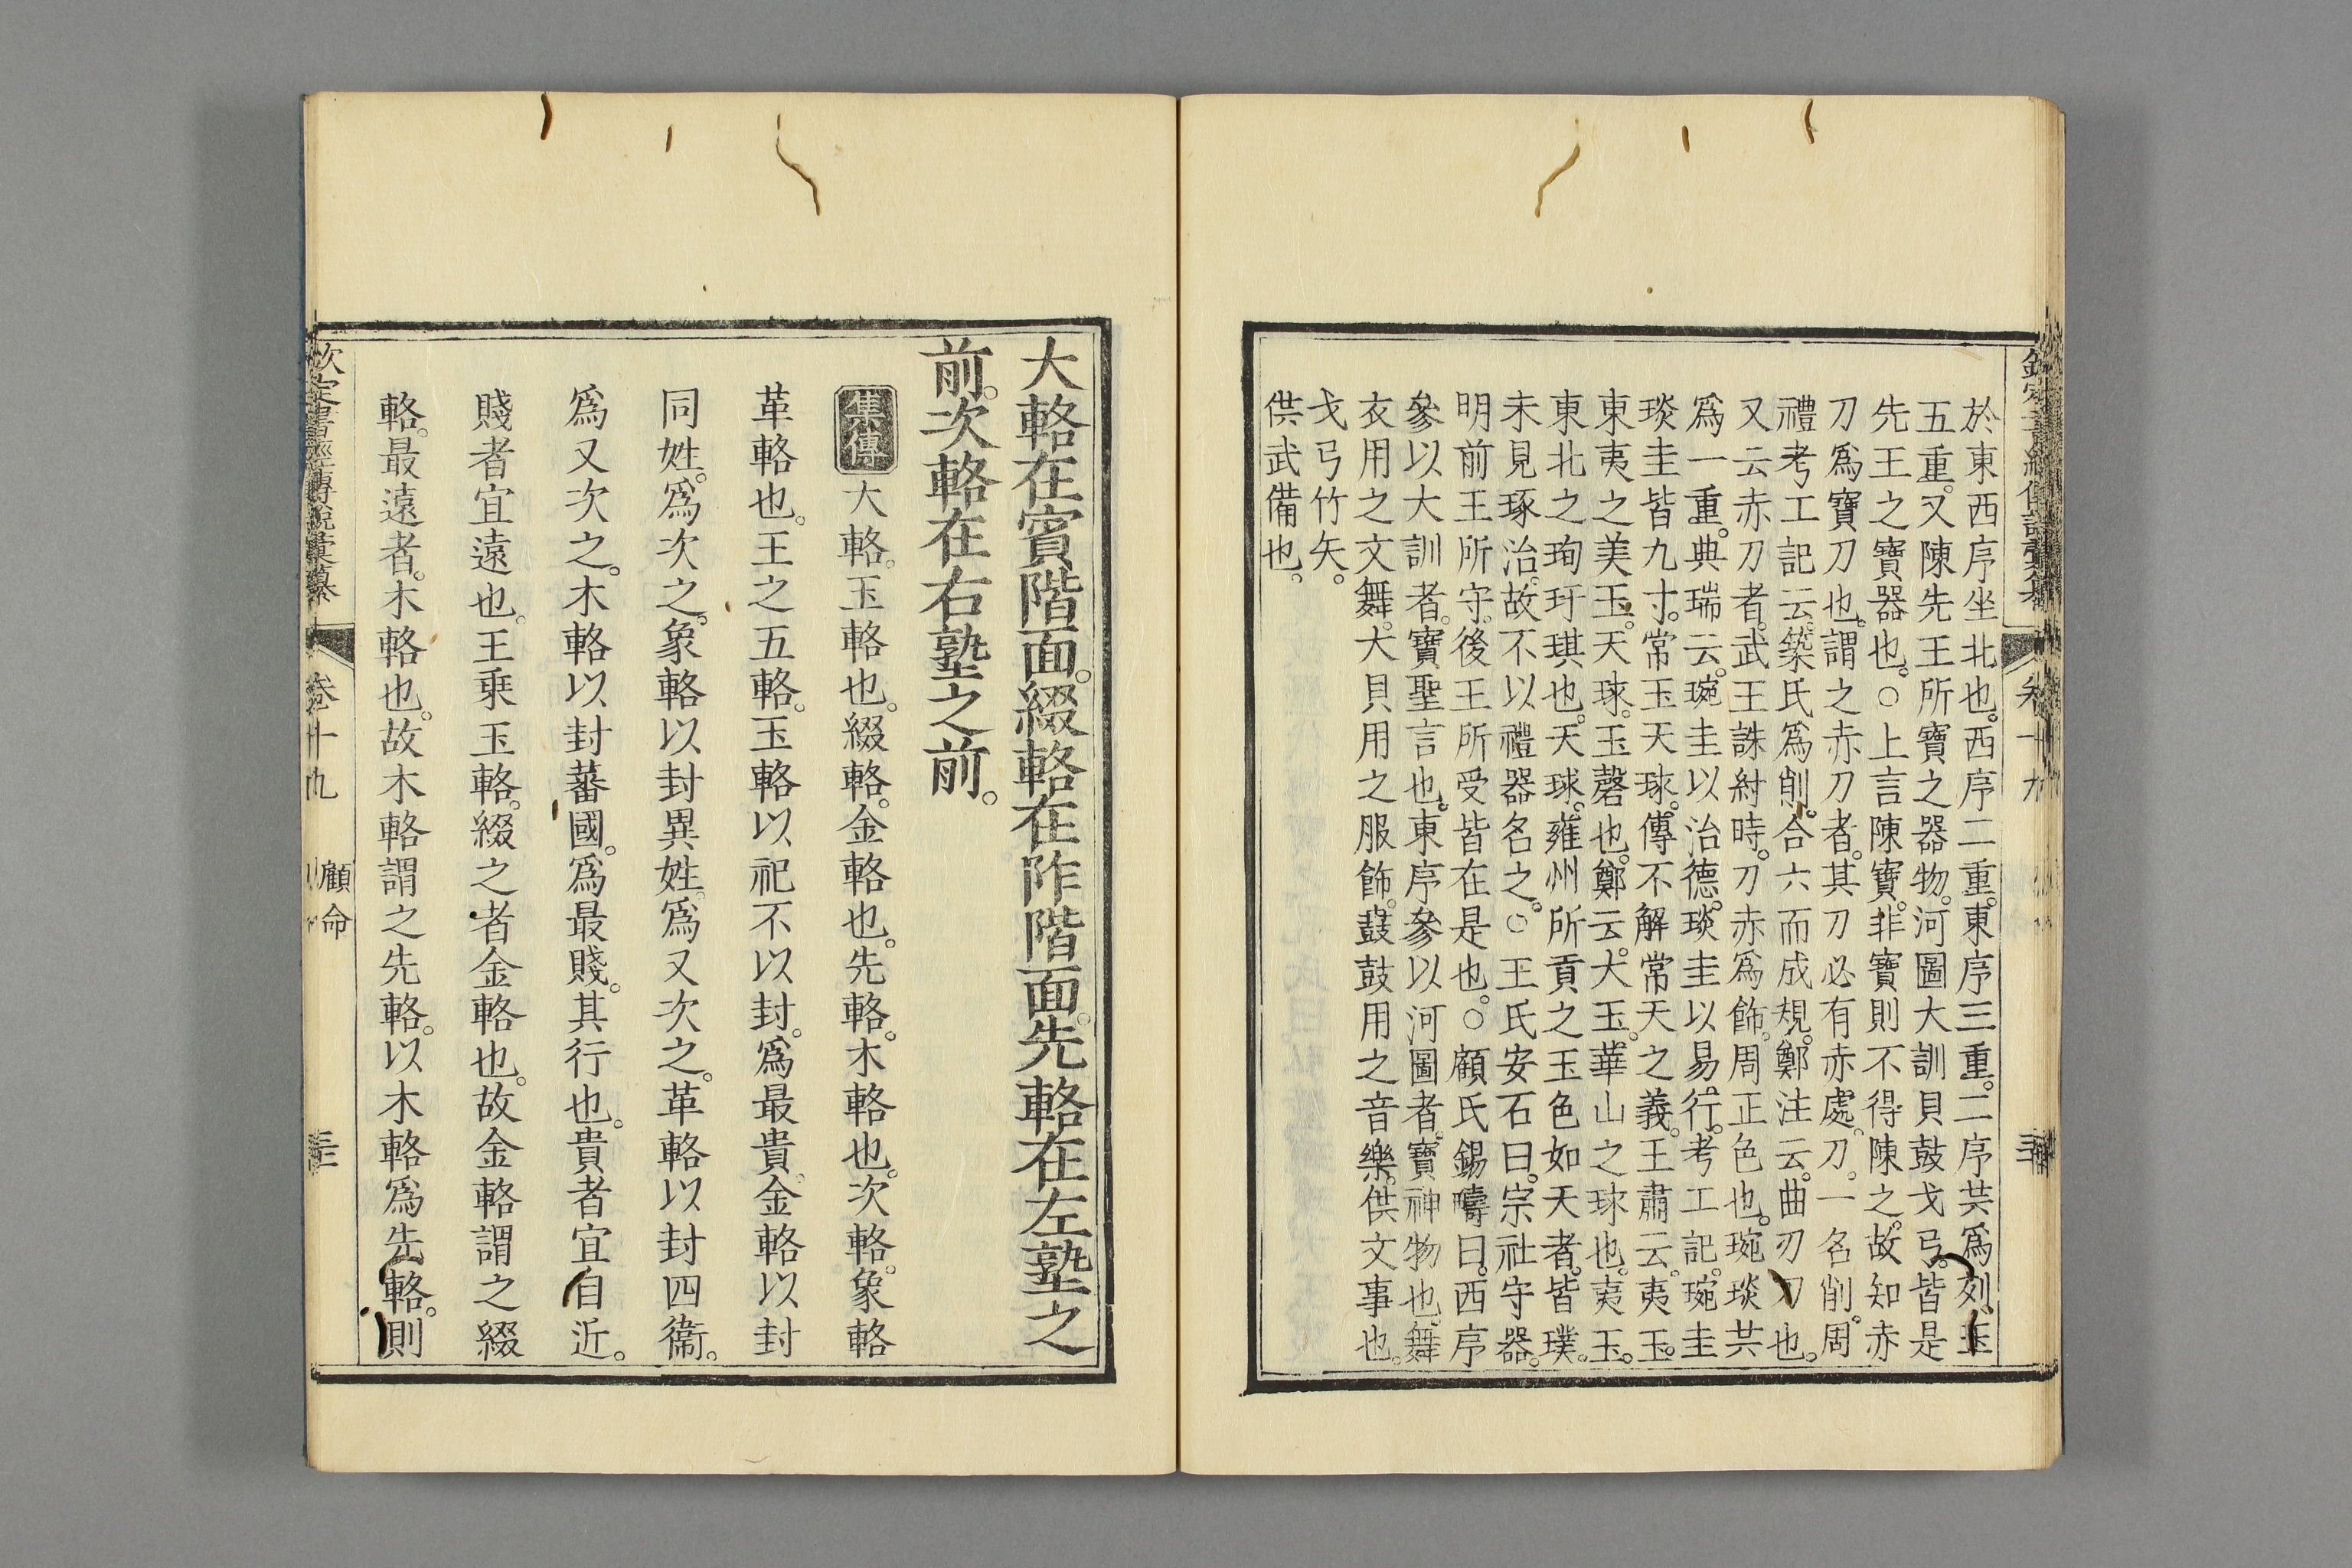 於東西序坐北也。西序二重。東序三重。二序共爲列玉
五重。又陳先王所寶之器物。河圖大訓貝鼓戈弓。皆是
先王之寶器也。○上言陳寶。非寶則不得陳之。故知赤
刀爲寶刀也。謂之赤刀者。其刀必有赤處。刀。一名削。周
禮考工記云。築氏爲削。合六而成規。鄭注云。曲刃刀也。
又云赤刀者。武王誅紂時。刀赤爲飾。周正色也。琬琰共
爲一重。典瑞云。琬圭以治德。琰圭以易行。考工記。琬圭
琰圭皆九寸。常玉天球。傳不解常天之義。王肅云。夷玉。
東夷之美玉。天球。玉磬也。鄭云。大玉。華山之球也。夷玉。
東北之珣玗琪也。天球。雍州所貢之玉色如天者。皆璞。
未見琢治。故不以禮器名之。○王氏安石曰。宗社守器。
明前王所守。後王所受皆在是也。○顧氏錫疇曰。西序
參以大訓者。寶聖言也。東序參以河圖者。寶神物也。舞
衣用之文舞。大貝用之服飾。鼖鼓用之音樂。供文事也。
戈弓竹矢。
供武備也。
大輅在賓階面。綴輅在阼階面。先輅在左塾之
前。次輅在右塾之前。
集傳 大輅。玉輅也。綴輅。金輅也。先輅。木輅也。次輅。象輅
革輅也。王之五輅。玉輅以祀不以封。爲最貴。金輅以封
同姓。爲次之。象輅以封異姓。爲又次之。革輅以封四衞。
爲又次之。木輅以封蕃國。爲最賤。其行也。貴者宜自近。
賤者宜遠也。王乘玉輅。綴之者金輅也。故金輅謂之綴
輅。最遠者。木輅也。故木輅謂之先輅。以木輅爲先輅。則
欽定書經傳說彙纂 卷十九 顧命